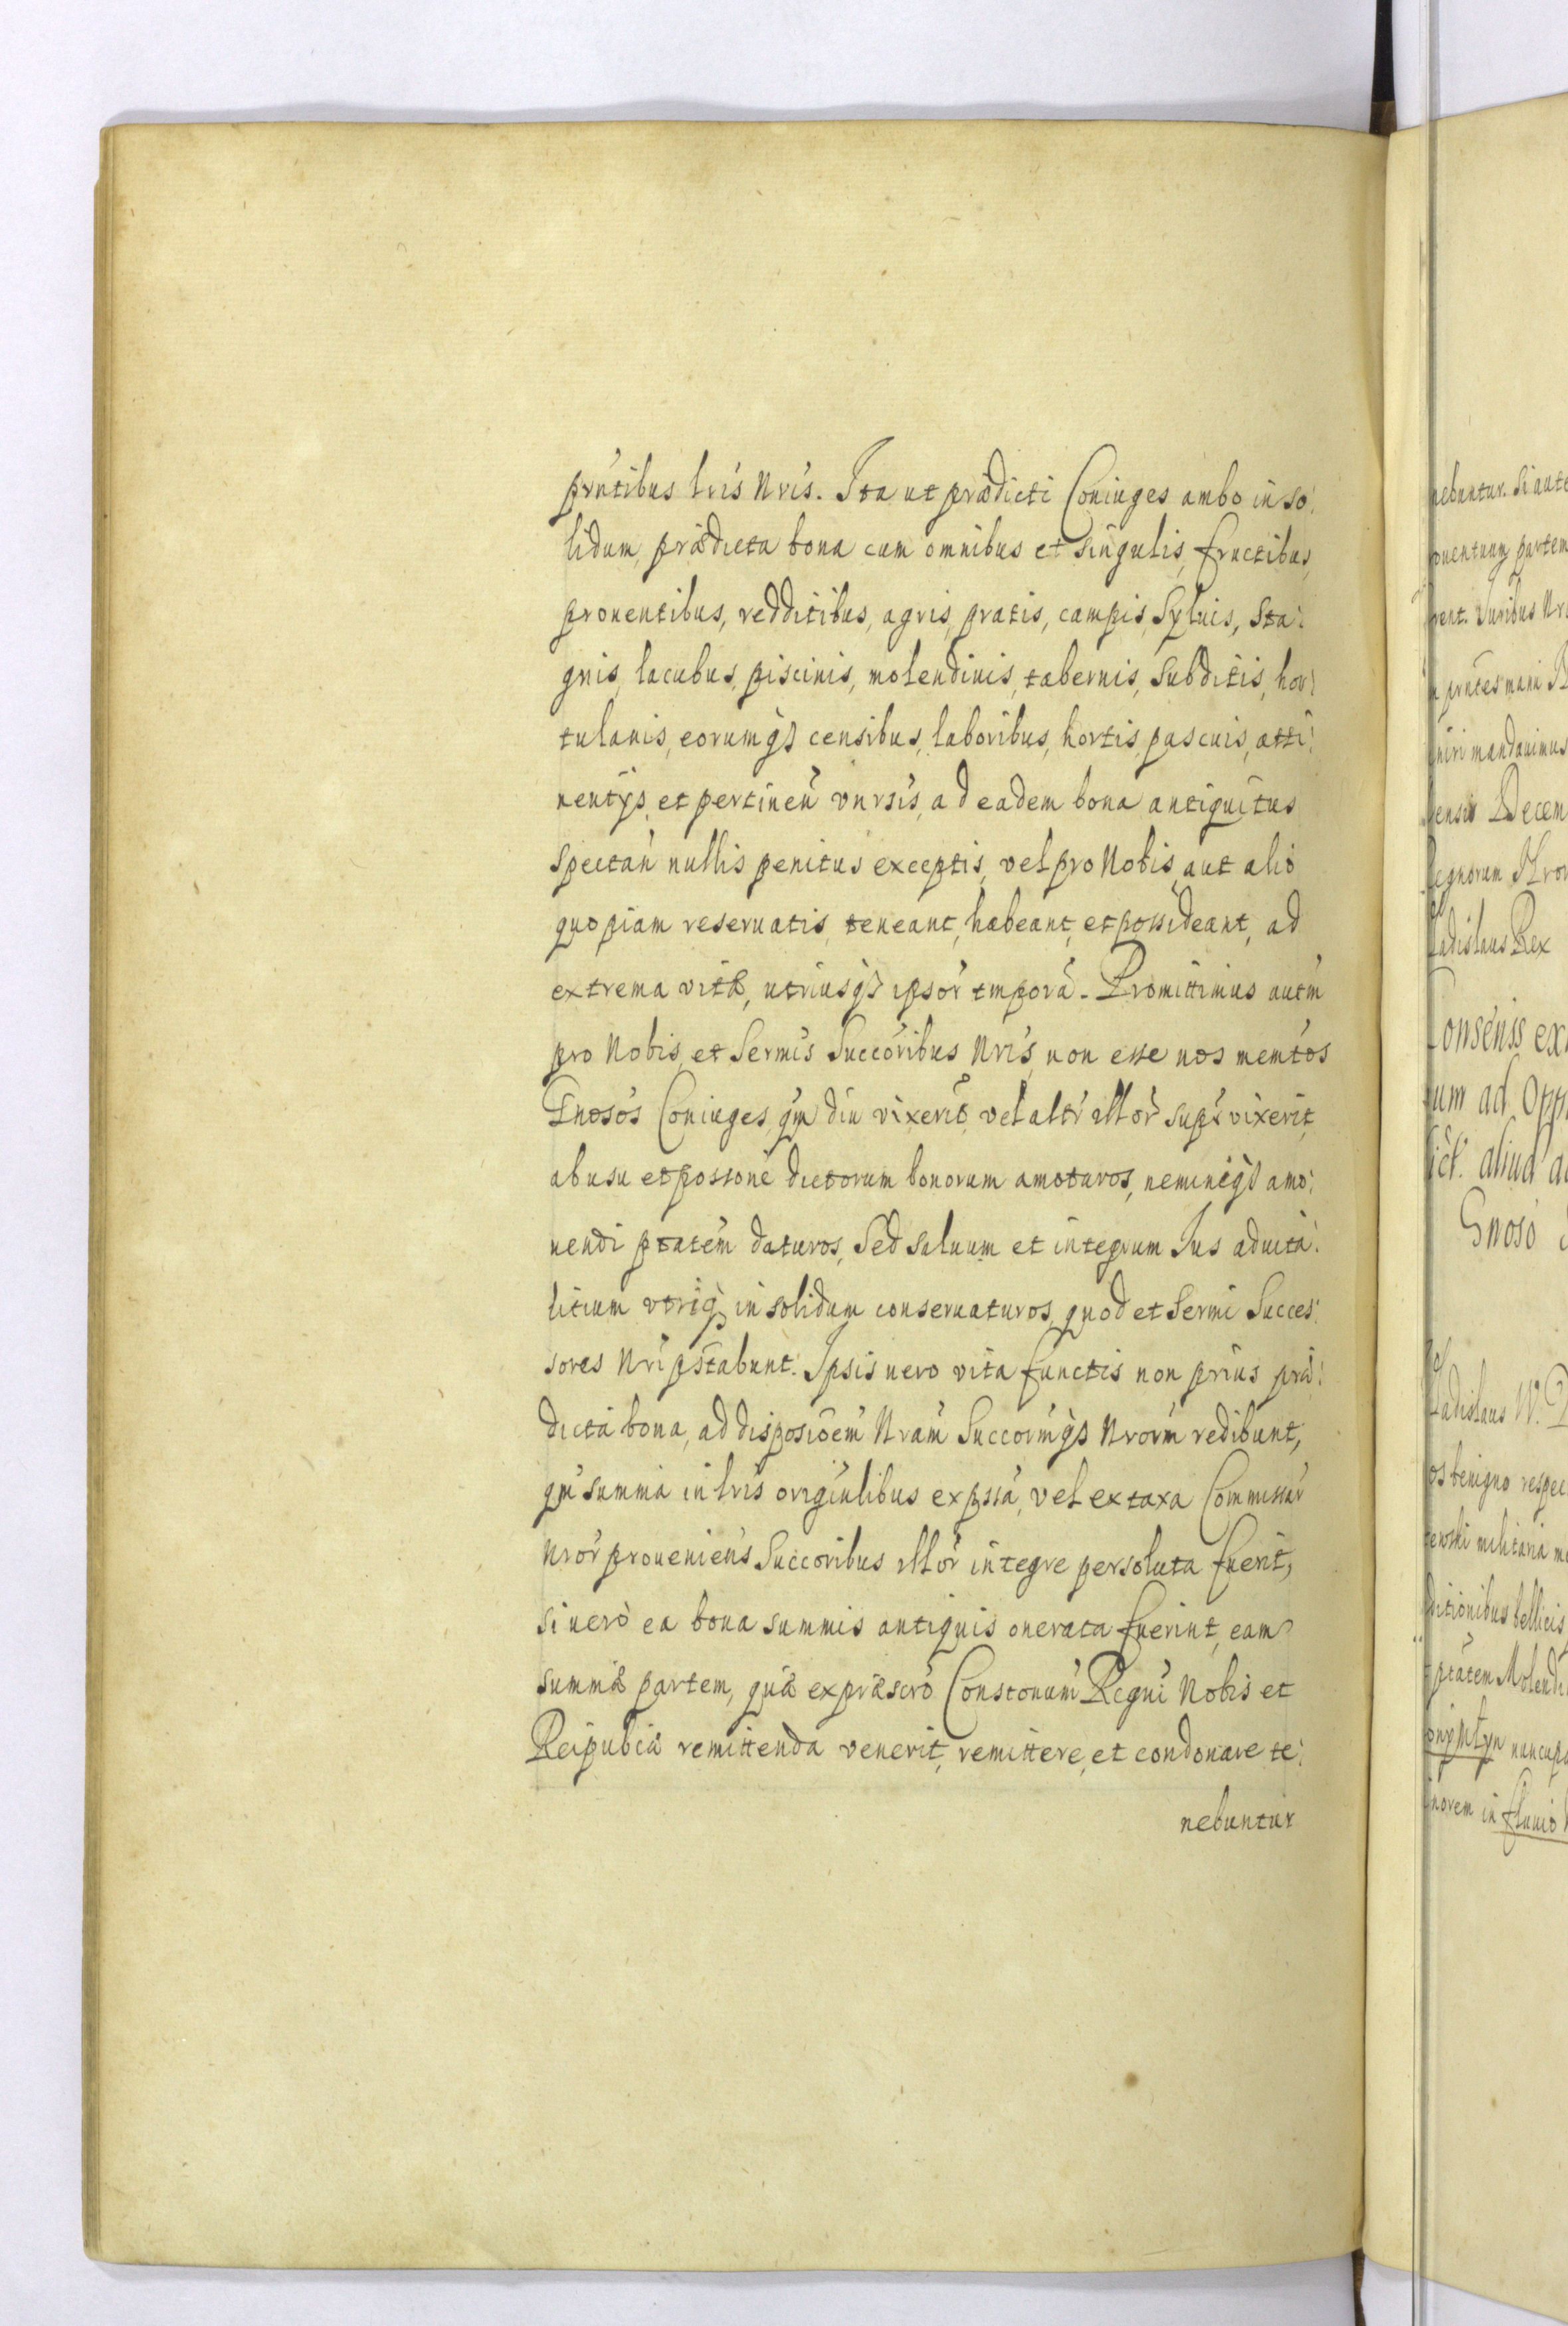 prntibus lris Nris. Ita ut prædicti Coniuges ambo in so:
lidum, prædicta bona cum omnibus et singulis, fructibus,
prouentibus, redditibus, agris, pratis, campis, Syluis, Sta:
gnis, lacubus, piscinis, molendinis, tabernis, Subditis, hor:
tulanis, eorumq3 censibus, laboribus, hortis, pascuis, atti:
nentijs, et pertinen vnrsis, ad eadem bona antiquitus
spectan nullis penitus exceptis, vel pro Nobis, aut alio
quopiam reseruatis, teneant, habeant, et possideant, ad
extrema vitæ, utriusq3 ipsor tmpora. Promittimus autm
pro Nobis, et Sermis Succoribus Nris, non esse nos memtos
Gnosos Coniuges, qm diu vixerit, vel altr illor sups vixerit,
ab usu et possone dictorum bonorum amoturos, nemineq3 amo:
uendi ptatem daturos, Sed saluum et integrum Jus aduita:
litium vtriq3 in solidum conseruaturos, quod et Sermi Succes:
sores Nri pstabunt. Ipsis uero vita functis non prius præ:
dicta bona, ad disposioem Nram Succormq3 Nrorm redibunt,
qm summa in lris originlibus expssa, vel ex taxa Commissar
Nror proueniens Succoribus illor integre persoluta fuerit,
si uero ea bona summis antiquis onerata fuerint, eam
summæ partem, quæ ex præscro Constonum Regni Nobis et
Reipubcæ remittenda venerit, remittere, et condonare te:
nebuntur
nebuntur. Si aut
prntes manu
niri mandauimus
Decem
Rex
um ad Opp
aliud
Gnoso
os benigno respec
militaria
ditionibus bellicis
ptatem Molendi
nuncupa
in fluuio